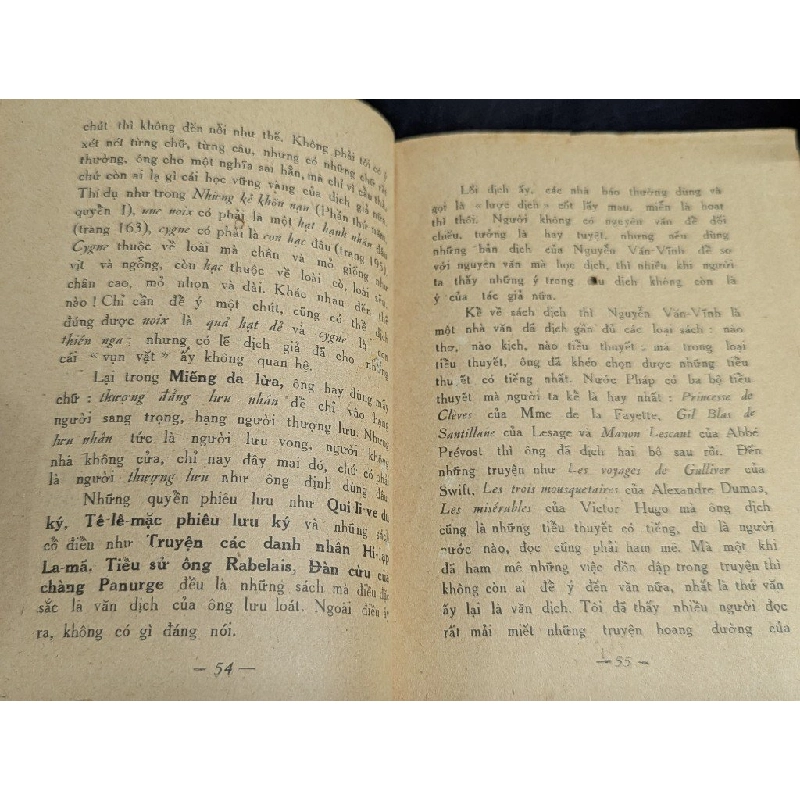 chút thì không đến nỗi như thế. Không phải tôi có ý
xét nét từng chữ, từng câu, nhưng có những chữ rất
thường, ông cho một nghĩa sai hẳn, mà chỉ vì cẩu thả,
chứ còn ai lạ gì cái học vững vàng của dịch giả nữa.
Thí dụ như trong Những kẻ khốn nạn (Phần thứ năm,
quyển I), une noix có phải là một hạt hạnh nhân đâu
(trang 163), cygne có phải là con hạc đâu (trang 195)
Cygne thuộc về loài mà chân và mỏ giống như
vịt và ngỗng, còn hạc thuộc về loài cò, loài sếu,
chân cao, mỏ nhọn và dài. Khác nhau đến thế
nào ! Chỉ cần để ý một chút, cũng có thể dịch
đúng được noix là quả hạt dẻ và cygne là con
thiên nga ; nhưng có lẽ dịch giả đã cho những
cái « vụn vặt » ấy không quan hệ.
Lại trong Miếng da lừa, ông hay dùng mấy
chữ : thượng đẳng lưu nhân để chỉ vào hạng
người sang trọng, hạng người thượng lưu. Nhưng
lưu nhân tức là người lưu vong, người không
nhà không cửa, chỉ nay đây mai đó, chứ có phải
là người thượng lưu như ông định dùng đâu.
Những quyển phiêu lưu như Qui-li-ve du
ký, Tê-lê-mặc phiêu lưu ký và những sách
cổ điển như Truyện các danh nhân Hi-lạp
La-mã, Tiểu sử ông Rabelais, Đàn cừu của
chàng Panurge đều là những sách mà điều đặc
sắc là văn dịch của ông lưu loát. Ngoài điều ấy
ra, không có gì đáng nói.
— 54 —
Lối dịch ấy, các nhà báo thường dùng và
gọi là « lược dịch » cốt lấy mau, miễn là hoạt
thì thôi. Người không có nguyên văn để đối
chiếu, tưởng là hay tuyệt, nhưng nếu dùng
những bản dịch của Nguyễn Văn-Vĩnh để so
với nguyên văn mà học dịch, thì nhiều khi người
ta thấy những ý trong câu dịch không còn là
ý của tác giả nữa.
Kể về sách dịch thì Nguyễn Văn-Vĩnh là
một nhà văn đã dịch gần đủ các loại sách : nào
thơ, nào kịch, nào tiểu thuyết ; mà trong loại
tiểu thuyết, ông đã khéo chọn được những tiểu
thuyết có tiếng nhất. Nước Pháp có ba bộ tiểu
thuyết mà người ta kể là hay nhất : Princesse de
Clèves của Mme de la Fayette, Gil Blas de
Santillane của Lesage và Manon Lescaut của Abbé
Prévost thì ông đã dịch hai bộ sau rồi. Đến
những truyện như Les voyages de Gulliver của
Swift, Les trois mousquetaires của Alexandre Dumas,
Les misérables của Victor Hugo mà ông dịch
cũng là những tiểu thuyết có tiếng, dù là người
nước nào, đọc cũng phải ham mê. Mà một khi
đã ham mê những việc dồn dập trong truyện thì
không còn ai để ý đến văn nữa, nhất là thứ văn
ấy lại là văn dịch. Tôi đã thấy nhiều người đọc
rất mải miết những truyện hoang đường của
— 55 —